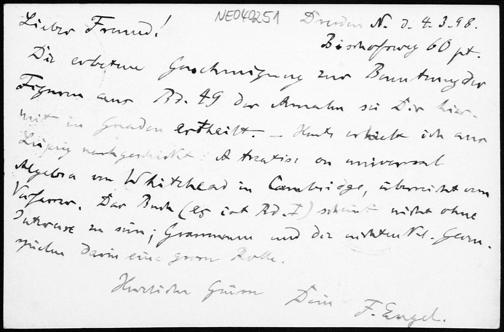 NE040251
Dresden N. d. 4.3.98.
Lieber Freund!
Bischofsweg 60 pt.
Die erbetene Genehmigung zur Benutzung der
Figuren aus Bd. 49 der Annalen sei Dir hier-
mit in Gnaden ertheilt. — Heute erhielt ich aus
Leipzig nachgeschickt: A treatise on universal
Algebra von Whitehead in Cambridge, überreicht vom
Verfasser. Das Buch (es ist Bd. I) scheint nicht ohne
Interesse zu sein; Grassmann und die nichteukl. Geom.
spielen darin eine grosse Rolle.
Herzliche Grüsse Dein F. Engel.